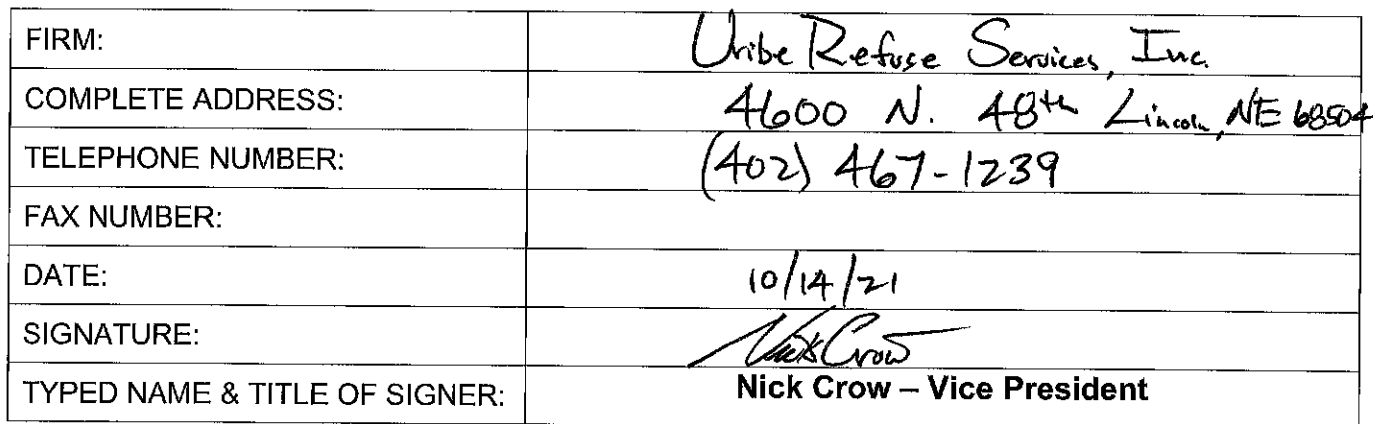 FIRM: Uribe Refuse Services, Inc.
COMPLETE ADDRESS: 4600 N. 48th Lincoln, NE 68504
TELEPHONE NUMBER: (402) 467-1239
FAX NUMBER:
DATE: 10/14/21
SIGNATURE: Nick Crow
TYPED NAME & TITLE OF SIGNER: Nick Crow – Vice President